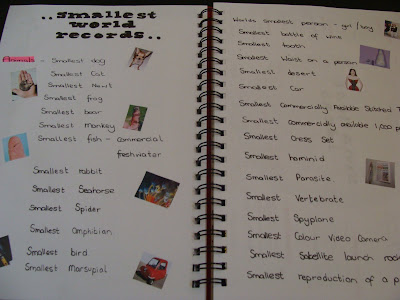 ..Smallest
world
records..
Animals - Smallest dog
Smallest Cat
Smallest Newt
Smallest frog
Smallest bear
Smallest monkey
Smallest fish - commercial
freshwater
Smallest rabbit
Smallest Seahorse
Smallest Spider
Smallest Amphibian
Smallest bird
Smallest Marsupial
Worlds smallest person - girl / boy
Smallest bottle of wine
Smallest tooth
Smallest Waist on a person
Smallest desert
Smallest Car
Smallest Commercially Available
Smallest commercially available 1,000 p
Smallest Chess Set
Smallest hominid
Smallest Parasite
Smallest Vertebrate
Smallest Spyplane
Smallest Colour Video Camera
Smallest launch
Smallest reproduction of a p